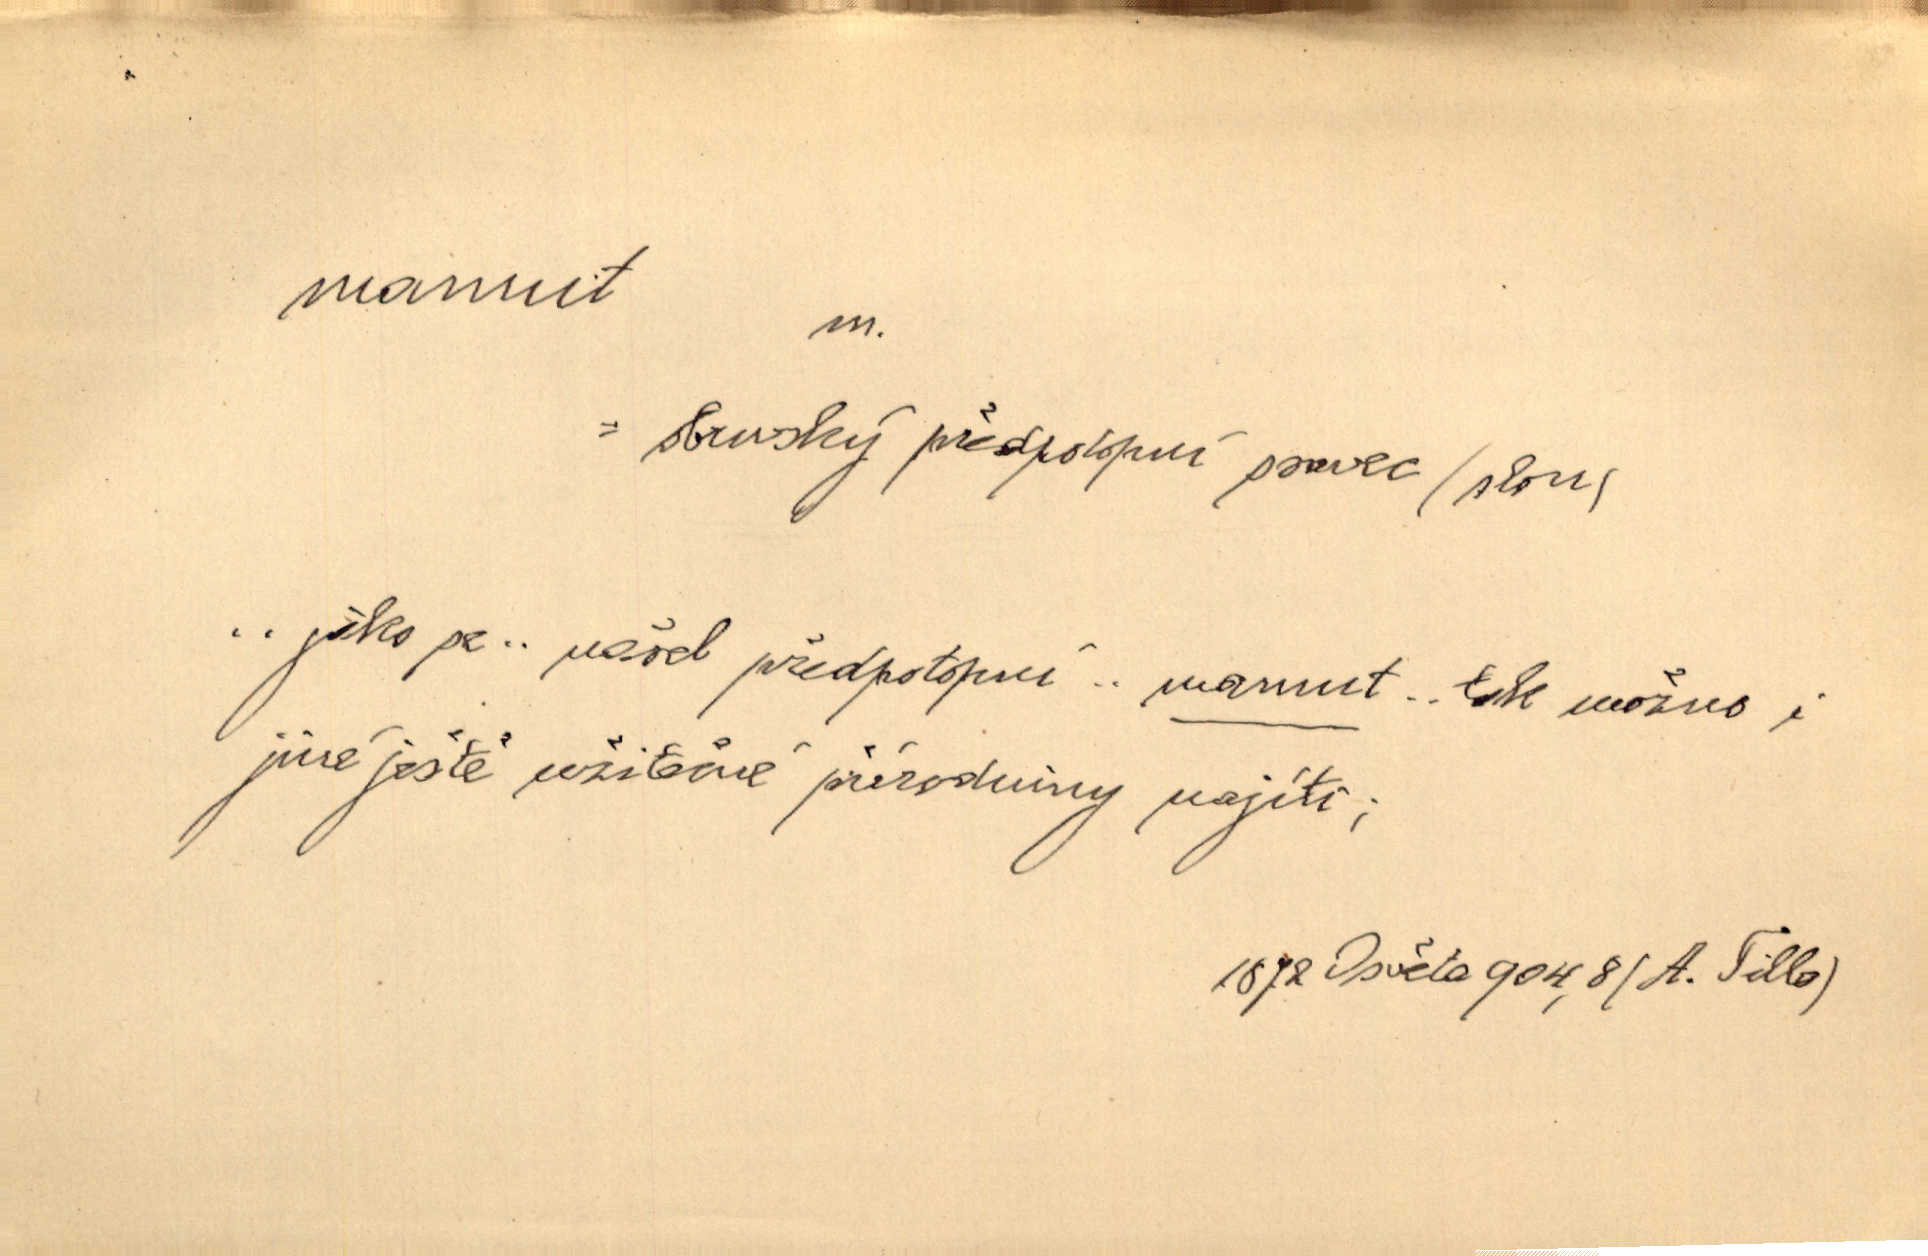 mamut
m.
= obrovský předpotopní savec (slon)
.. jako se .. našel předpotopní .. mamut .. tak možno i
jiné ještě užitečné přírodniny najíti;
1872 Osvěta 904, 8 (A. Tille)